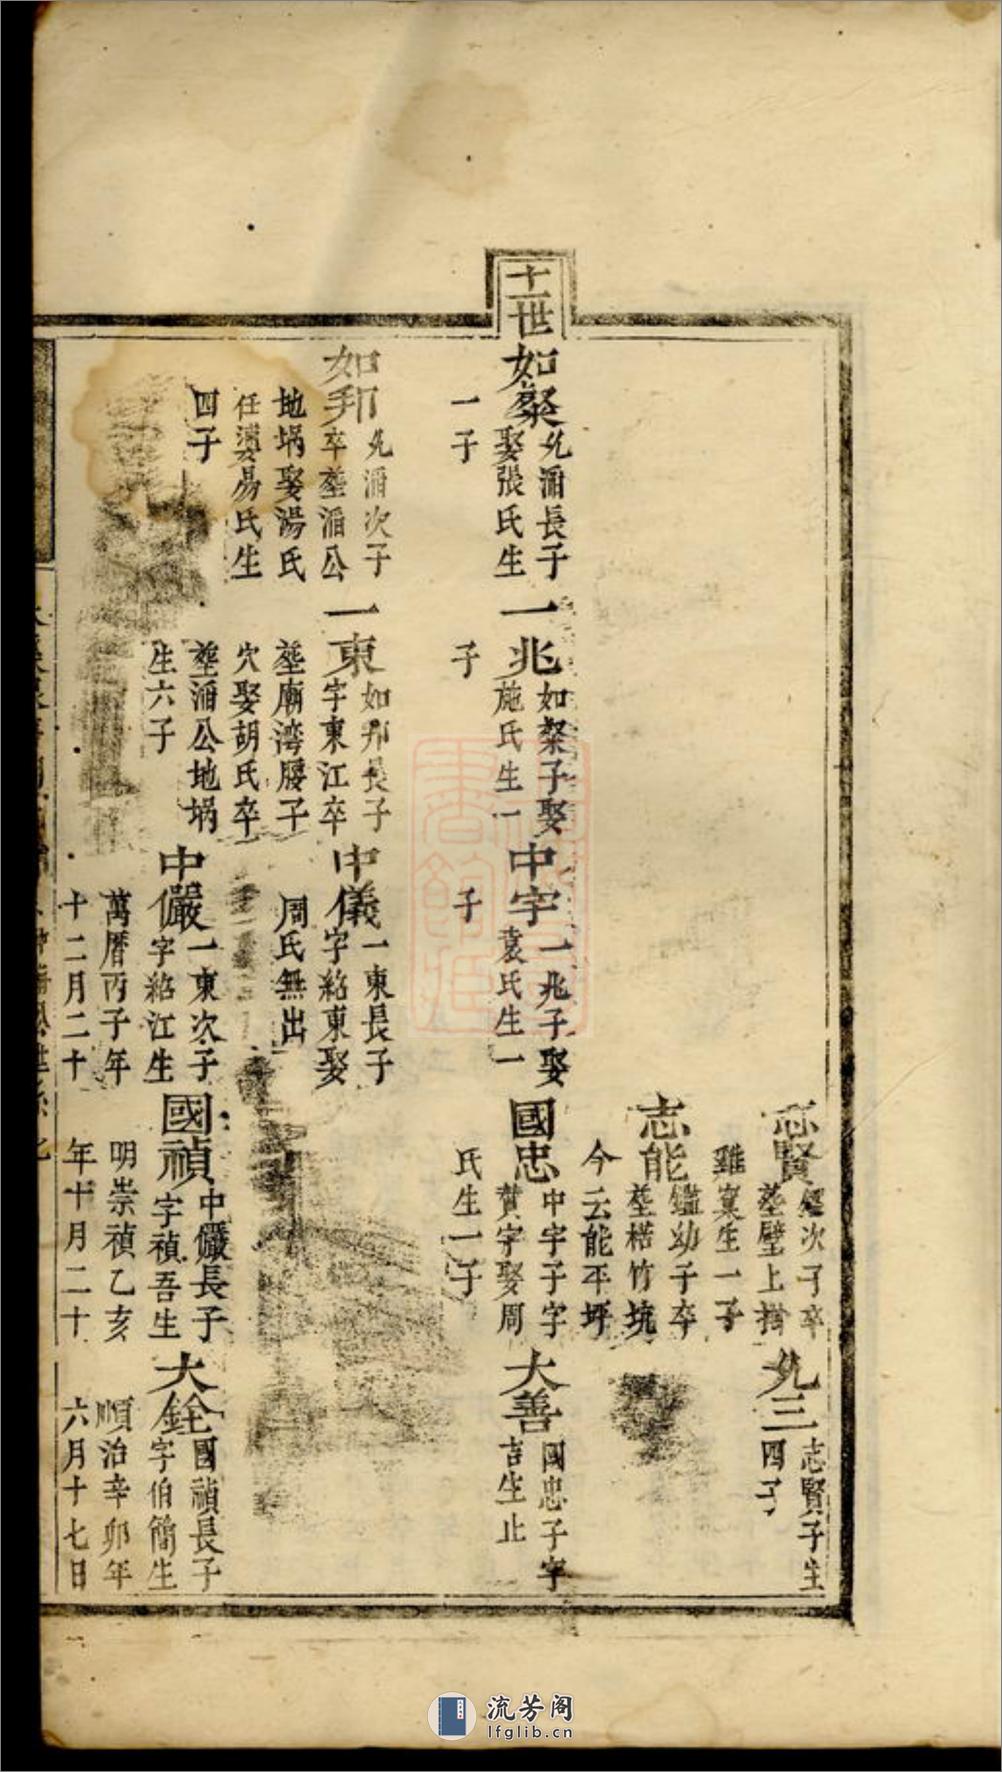 志賢
次子卒
塟壁上
雞窠生一子
志能
鑑幼子卒
塟楛竹坑
今云能平坪
三
志賢子生
四子
十一世
如粲
長子
娶張氏生
一子
一兆
如粲子娶
施氏生一
子
中字
一兆子娶
袁氏生一
子
國忠
中字子字
賛字娶周
氏生一子
大善
國忠子字
吉生止
如邦
次子
卒塟湏公
地堝娶湯氏
易氏生
四子
一東
如邦長子
字東江卒
塟廟湾腰子
穴娶胡氏卒
塟湏公地堝
生六子
中儀
一東長子
字紹東娶
周氏無出
中儼
一東次子
字紹江生
萬曆丙子年
十二月二十
國禎
中儼長子
字禎吾生
明崇禎乙亥
年十月二十
大銓
國禎長子
字伯簡生
順治辛卯年
六月十七日
流芳阁
lfglib.cn